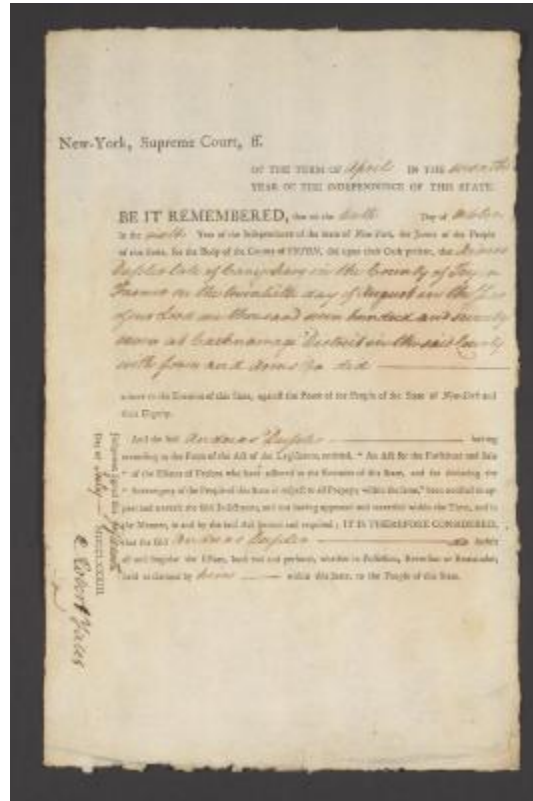 New-York, Supreme Court, ss.
OF THE TERM OF April IN THE seventh
YEAR OF THE INDEPENDENCE OF THIS STATE.
BE IT REMEMBERED, that on the Day of October
In the sixth Year of the Independence of the State of New-York, the Jurors of the People
of this State, for the Body of the County of TRYON, did upon their Oath present, that Andrew
late of in the County of Tryon
Farmer on the twentieth day of August in the Year
of our Lord one thousand seven hundred and seventy
seven at District in the said County
with force and Arms &a did
adhere to the Enemies of this State, against the Peace of the People of the State of New-York and
their Dignity.
And the said having
according to the Form of the Act of the Legislature, entitled, " An Act for the Forfeiture and Sale
" of the Estates of Persons who have adhered to the Enemies of this State, and for declaring the
" Sovereignty of the People of this State in respect to all Property within the same," been notified to ap-
pear and traverse the said Indictment, and not having appeared and traversed within the Time, and in
the Manner, in and by the said Act limited and required; IT IS THEREFORE CONSIDERED,
that the said do forfeit
all and singular the Estate, both real and personal, whether in Possession, Reversion or Remainder,
held or claimed by him within this State, to the People of this State.
Judgment signed this
Day of July MDCCLXXXIII.
Robert Yates